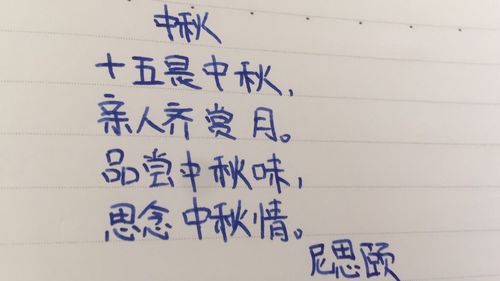 中秋
十五是中秋,
亲人齐赏月。
品尝中秋味,
思念中秋情。
尼思颐